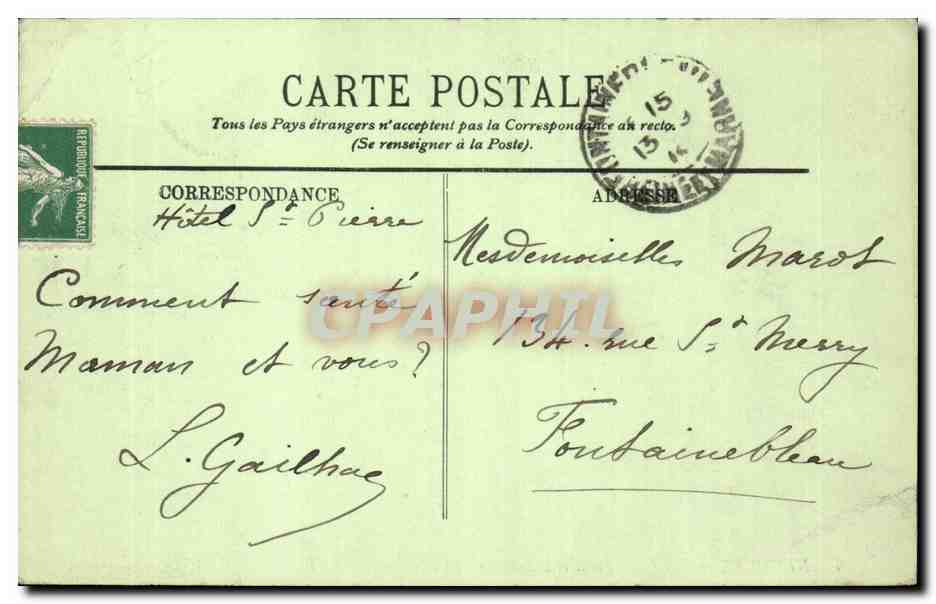 CARTE POSTALE
Tous les Pays étrangers n'acceptent pas la Correspondance au recto.
(Se renseigner à la Poste).
CORRESPONDANCE
ADRESSE
REPUBLIQUE FRANÇAISE
15
13
Hôtel St Pierre
Comment santé
Maman et vous ?
L. Gailhac
Mesdemoiselles Marot
134. rue St Merry
Fontainebleau
CPAPHIL